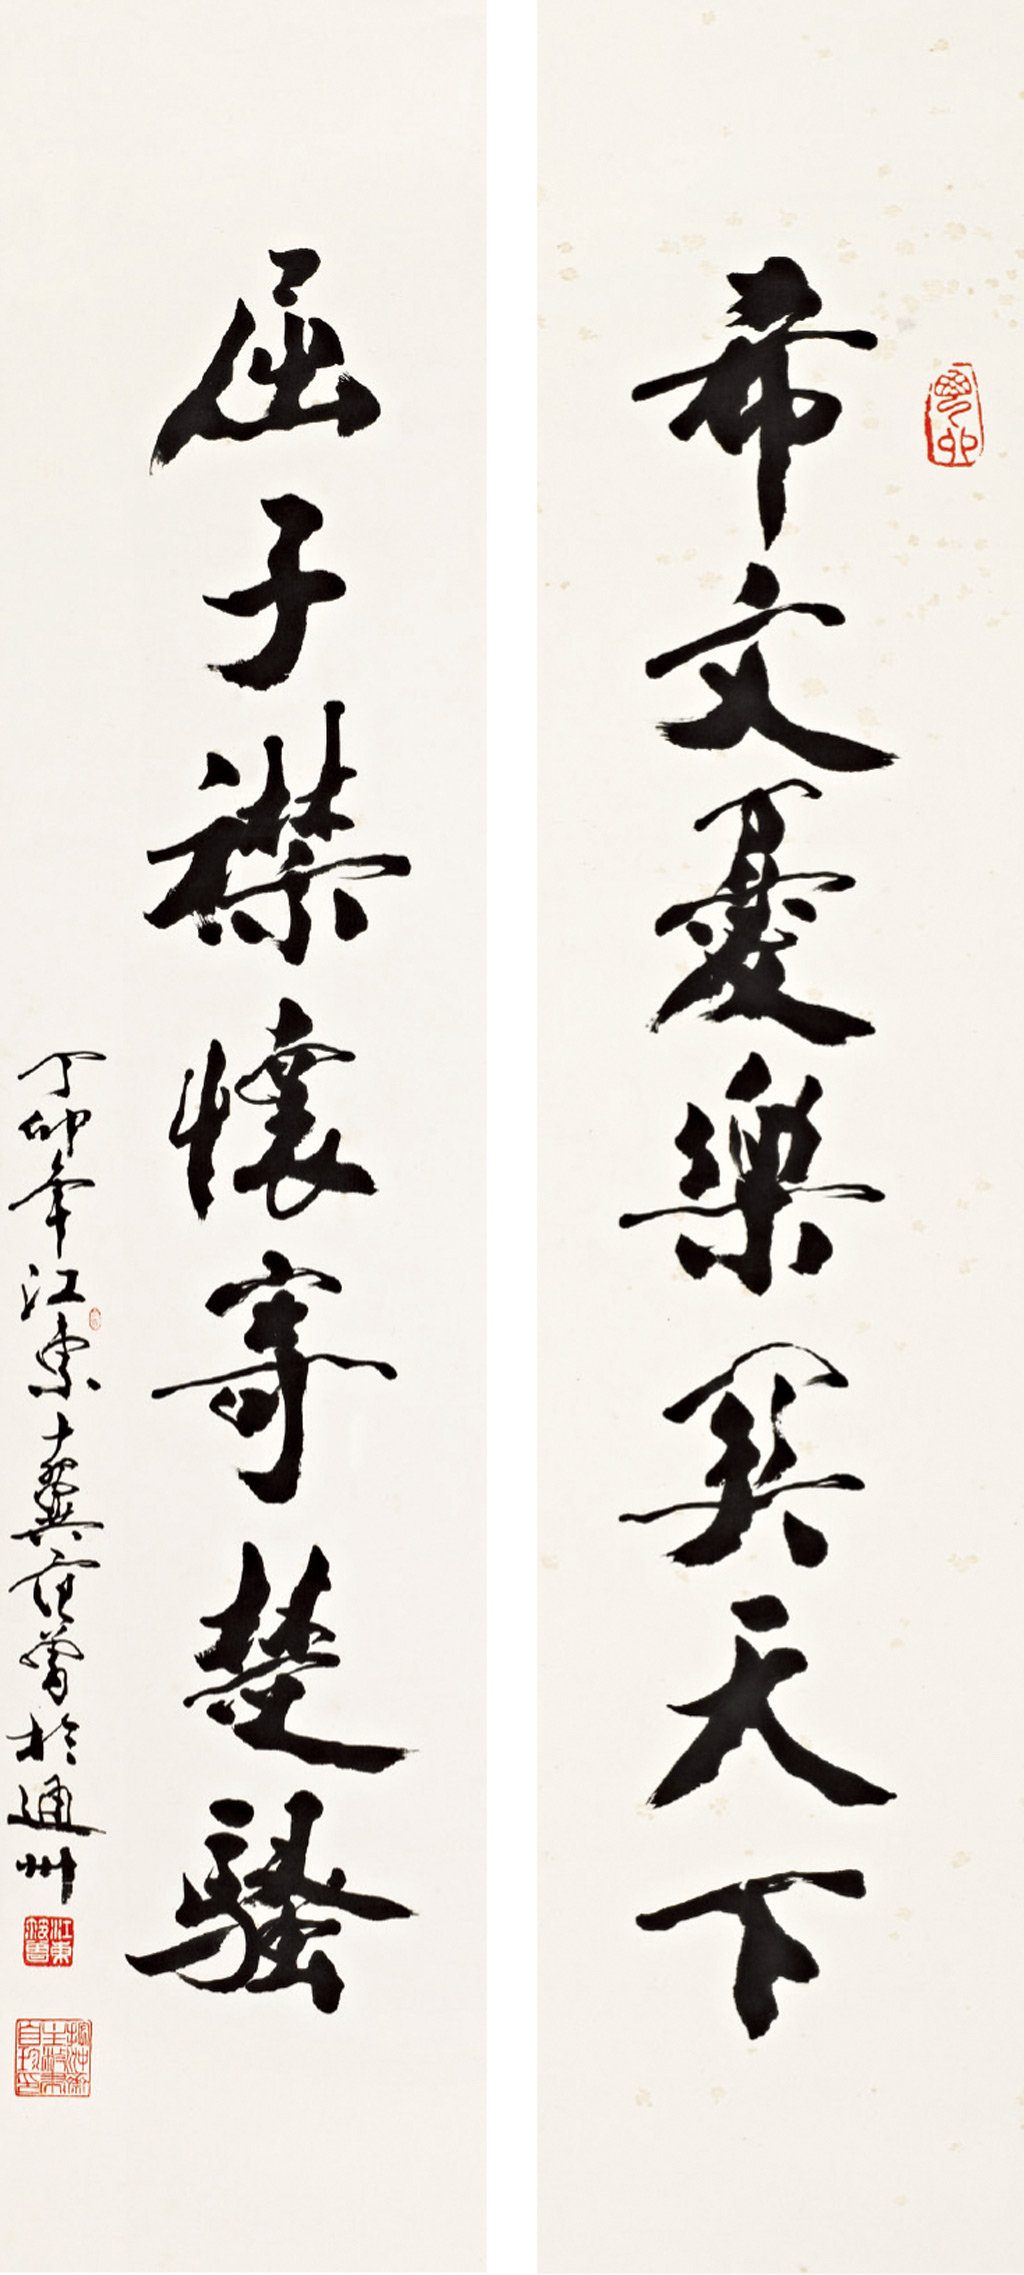 希文憂樂關天下
屈子襟懷寄楚騷
丁卯年江東十翼范曾於通州
江東范曾